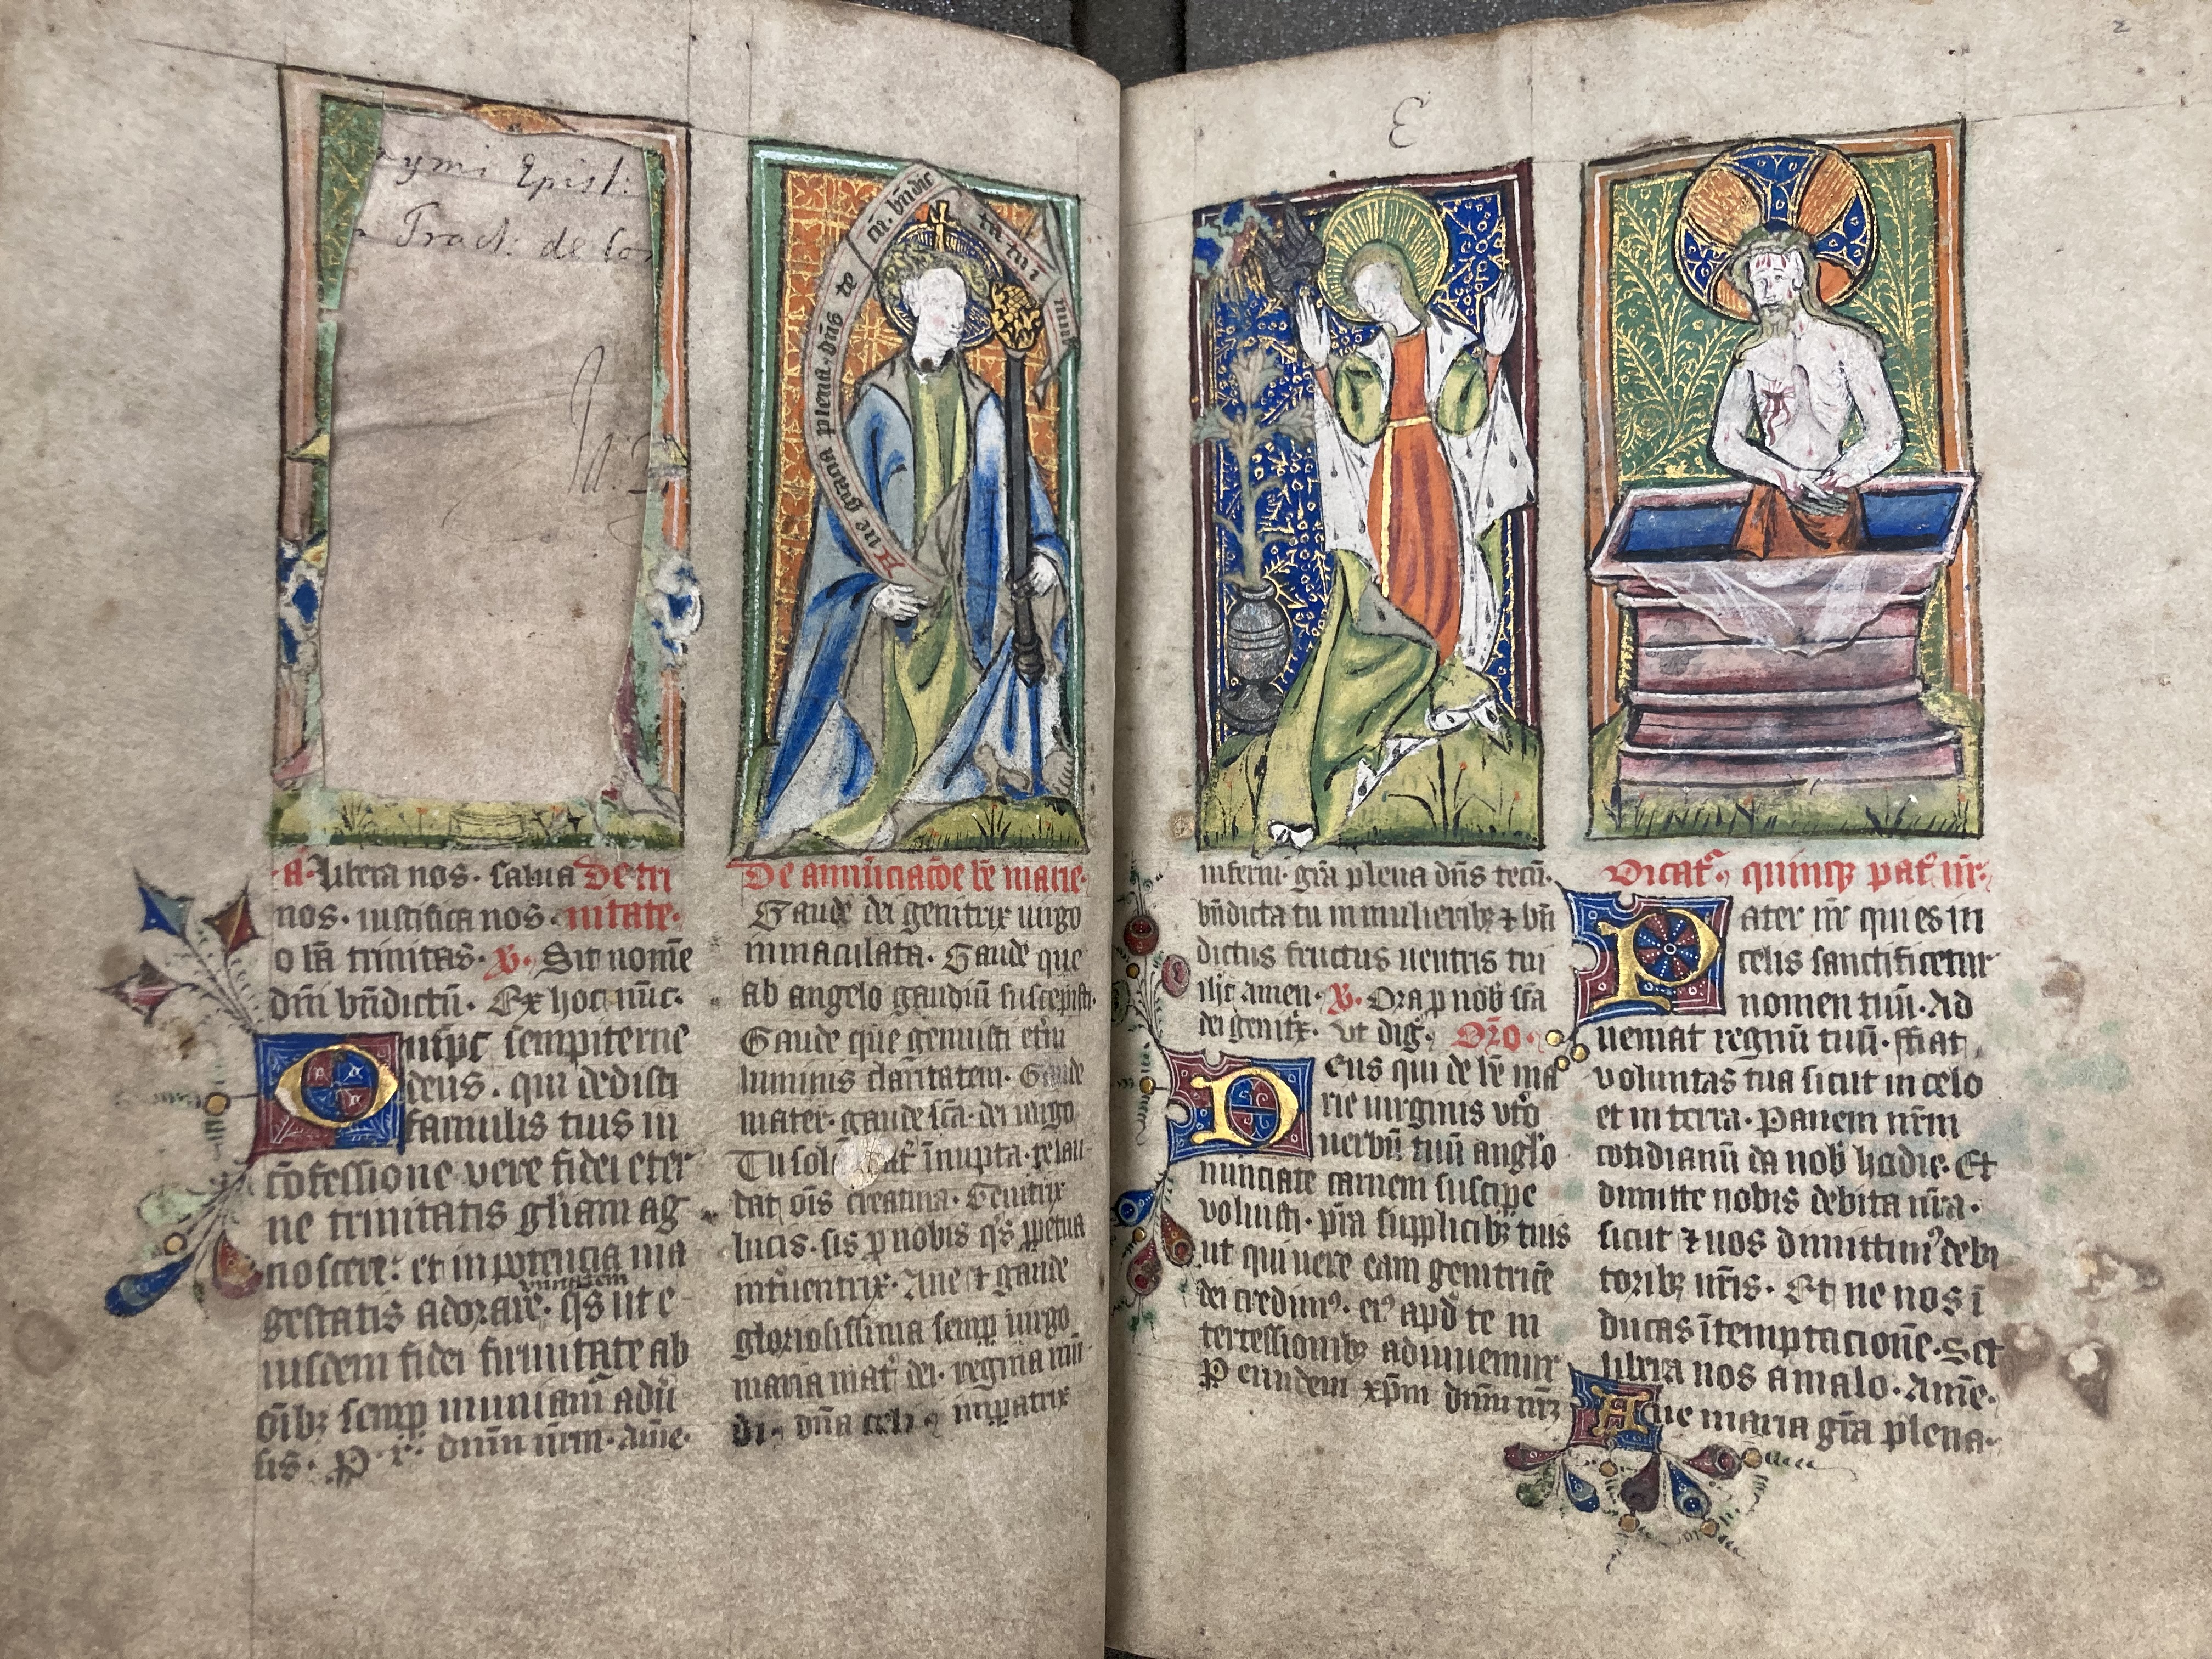 ymi Epist:
Tract: de Con
Aue gratia plena. dn̄s te
cū. bn̄dic
ta tu i
mu
·a̅· libera nos. salua De tri
nos. iustifica nos. nitate.
o bā trinitas. V̶. Sit nomē
dn̄i bn̄dictū. Ex hoc nūc.
Omīps sempiterne
deus. qui dedisti
famulis tuis in
cōfessione vere fidei eter
ne trinitatis gl̄iam ag
noscere: et in potencia ma
vnitatem
gestatis adorare. qs̄ ut e
iusdem fidei firmitate ab
oīb; semp̱ muniam̄ adū
sis. P̱. x̄. dn̄m nr̄m. Amē.
De annūciacōe bē marie.
Gaude dei genitrix uirgo
inmaculata. Gaude que
ab angelo gaudiū suscepisti.
Gaude que genuisti et̄ni
luminis claritatem. Gaude
mater. gaude sc̄a. dei uirgo
Tu sol īnupta. te lau
dat oīs creatura. Genitrix
lucis. sis p̱ nobis qs̄ p̱petua
int̄uentrix. Aue et gaude
gloriosissima semp̱ uirgo
maria mat̄ dei. regina mū
di. dn̄a celi imp̱atrix
E
2
inferni. gr̄a plena dn̄s tecū.
bn̄dicta tu in mulierib; ⁊ bn̄
dictus fructus uentris tui
ih̄c amen. V̶. Ora p̱ nob̄ sc̄a
dei genit̄x. Vt dig̅. Or̄o.
Deus qui de bē ma
rie uirginis vt̄o
uerbū tuū angl̄o
nunciate carnem suscipe
voluisti. p̄ta supplicib; tuis
ut qui uere eam genitricē
dei credim⁹. ei⁹ apd̄ te in
tercessionib; adiuuemur
P̱ eundem xp̄m dn̄m nr̄m
Dicat̄ quinq; pat̄ nr̄.
Pater nr̄ qui es in
celis sanctificetur
nomen tuū. Ad
ueniat regnū tuū. ffiat
voluntas tua sicut in celo
et in terra. Panem nr̄m
cotidianū da nob̄ hodie. Et
dimitte nobis debita nr̄a.
sicut ⁊ nos dimittim⁹ debi
torib; nr̄is. Et ne nos ī
ducas ī temptacionē. Set
libera nos a malo. Amē.
Aue maria gr̄a plena.